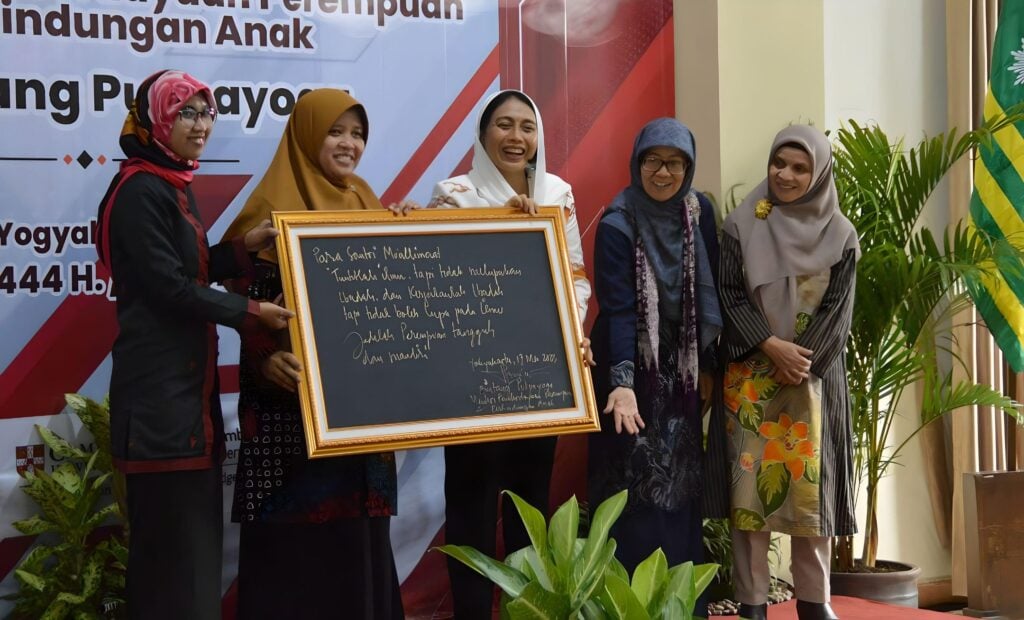 Perempuan
lindungan Anak
ang Pu ayoga
Yogya
1444 H.
Para Santri Mu'allimaat
"Tuntutlah ilmu, tapi tidak melupakan
Ibadah, dan Kerjakanlah Ibadah
tapi tidak boleh lupa pada ilmu
Jadilah Perempuan tangguh
dan mandiri"
Yogyakarta, 17 Mei
Bintang Puspayoga
Menteri Pemberdayaan Perempuan
& Perlindungan Anak